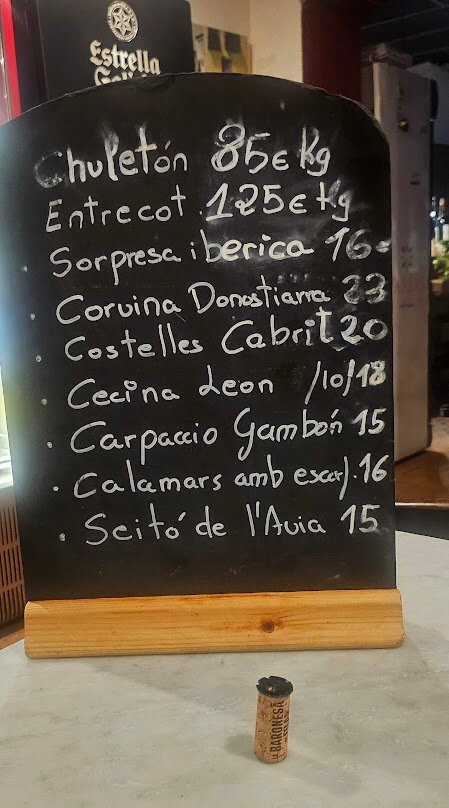 Estrella
Galicia
Chuletón 85€ Kg
Entrecot 125€ Kg
· Sorpresa iberica 16
· Corvina Donostiarra 23
· Costelles Cabrit 20
· Cecina Leon /10/18
· Carpaccio Gambón 15
· Calamars amb escarj. 16
· Seitó de l'Avia 15
LA BARONESA